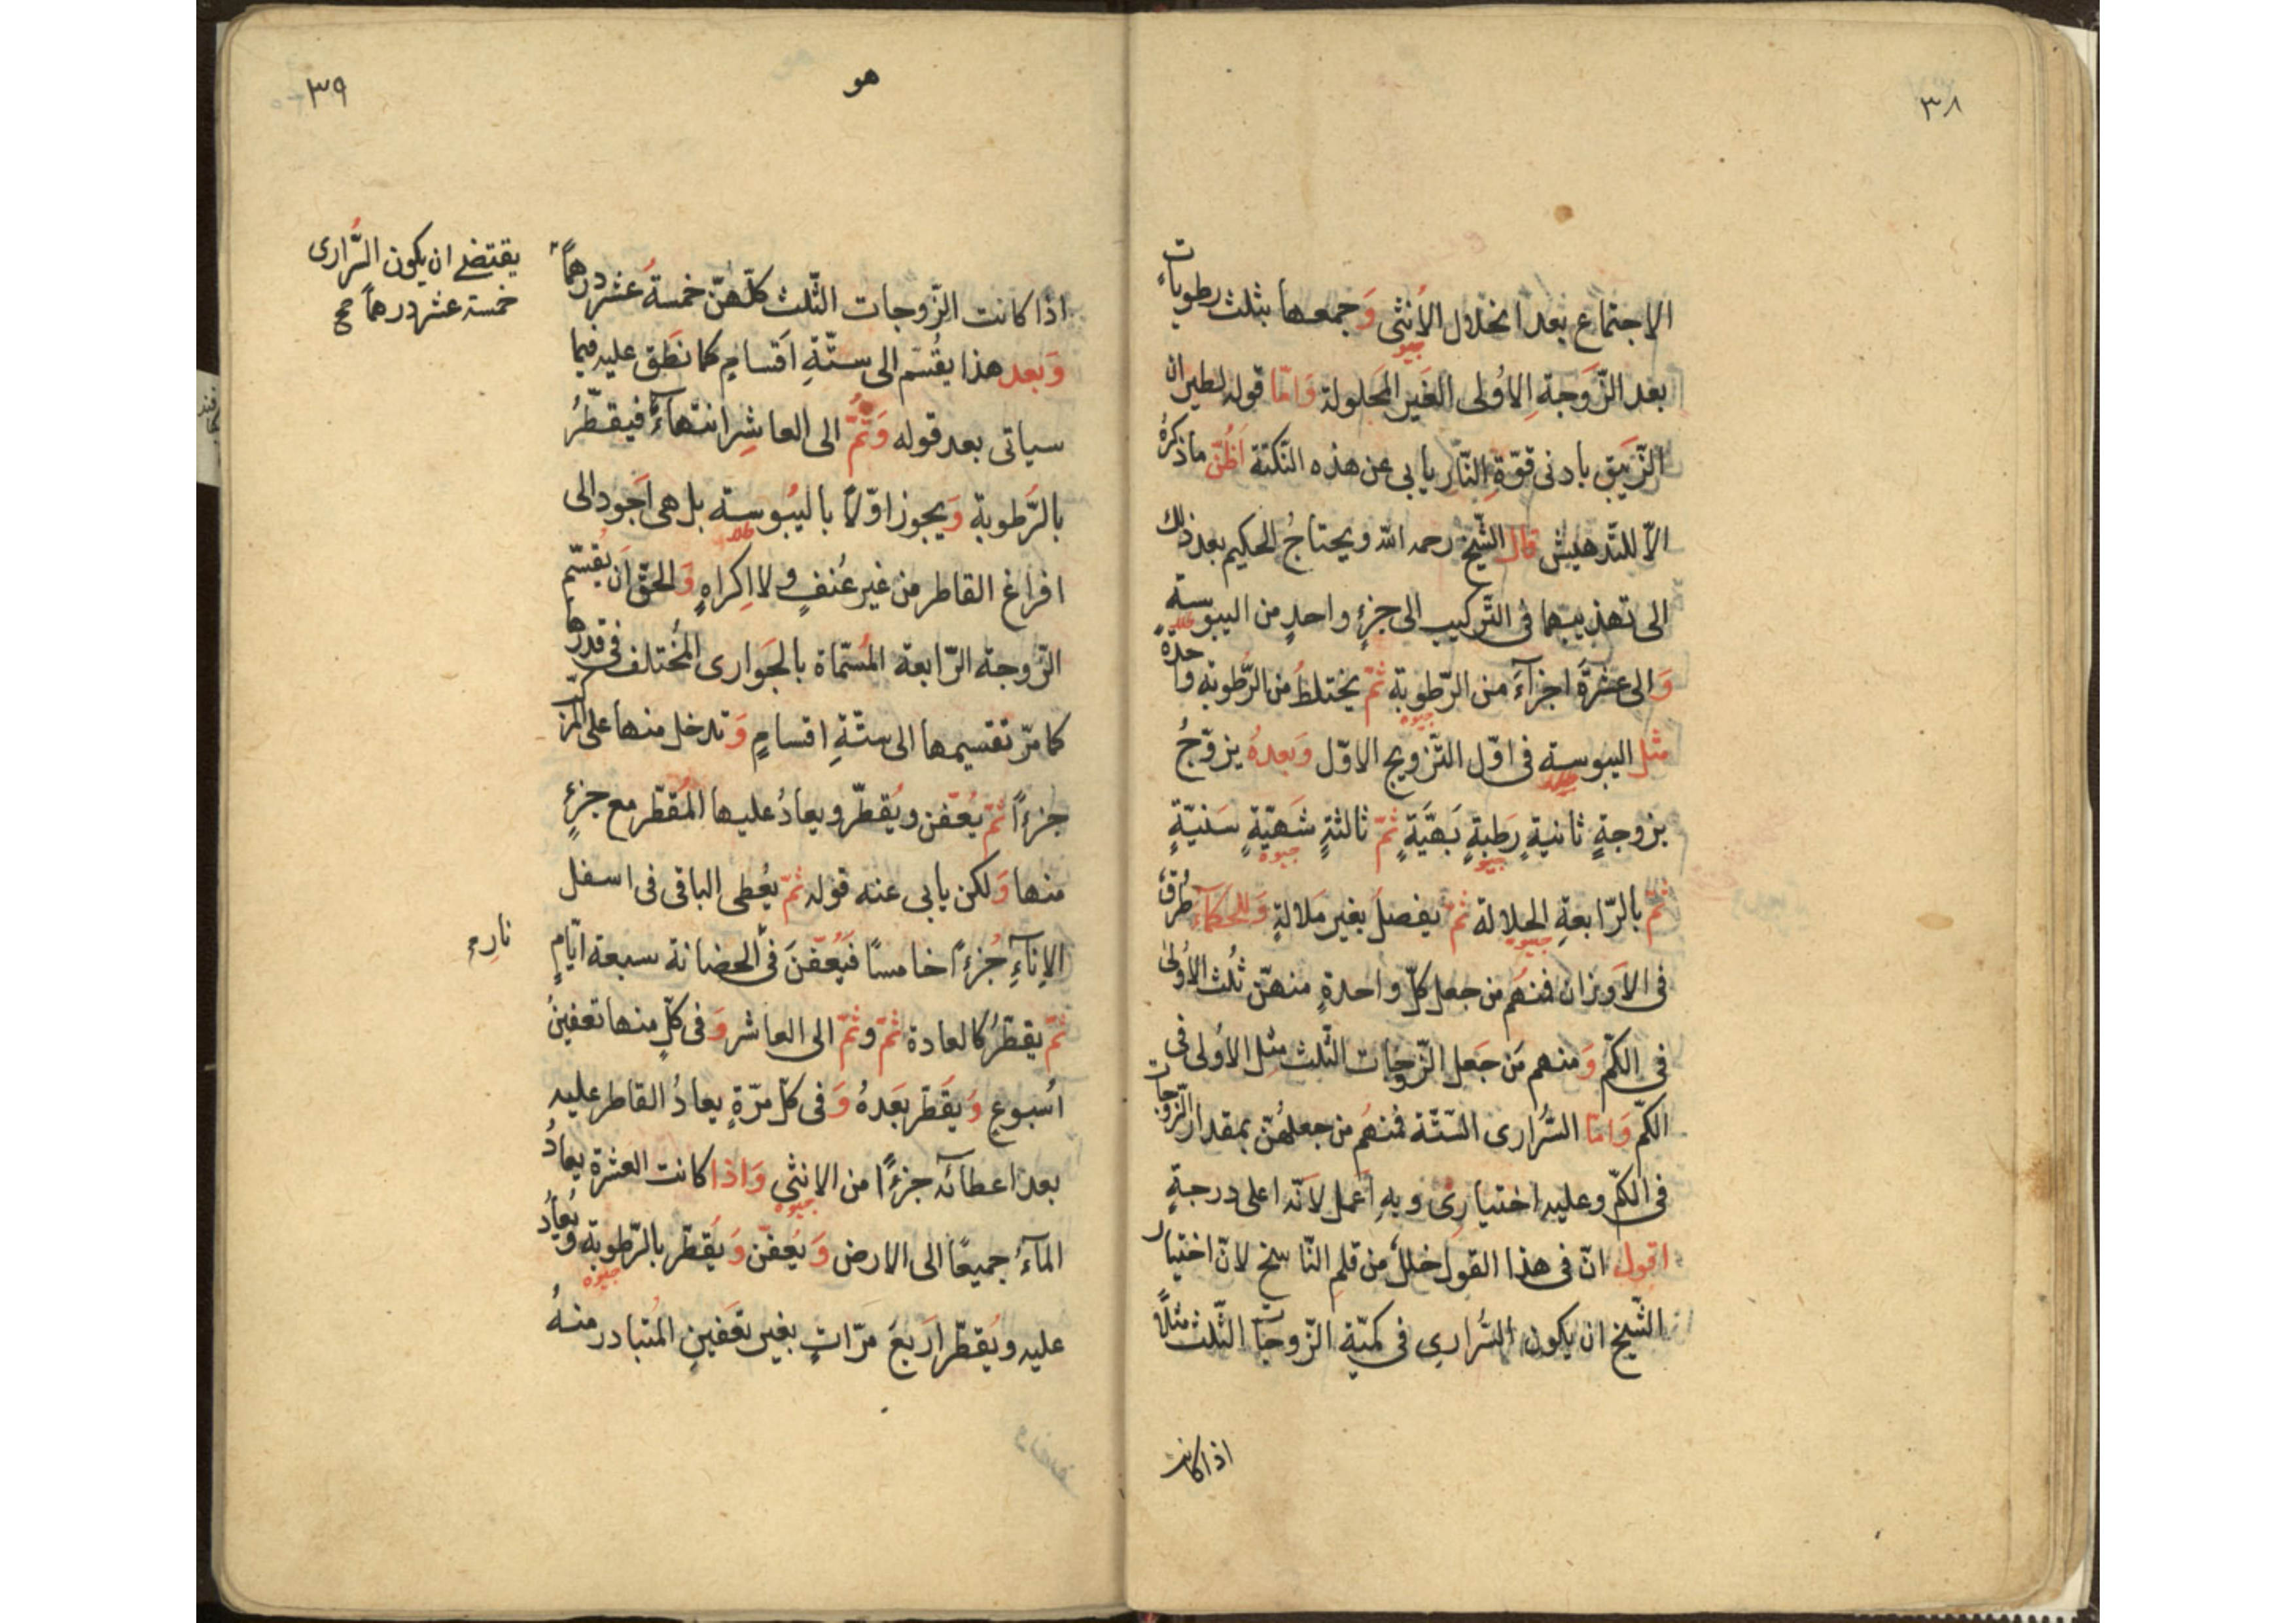 ٣٨
الاجتماع بعد انحلال الأنثى وَجمعها بثلث رطوباتٍ
جيوه
بعد الزَّوَجةِ الأولى الغَير المحَلولة وَامّا قوله لطيران
الزَّيبق بادنى قوّةِ النّارِ يابى عن هذه النّكتة اَظُنّ ماذكرهُ
الاّ للتّدهيش قال الشّيخ رحمه الله ويحتاجُ الحكيم بعد ذلك
الى تهذيبها فى التّركيب الى جزءٍ واحدٍ من اليبوسةِ
طلا
وَالى عشرَةِ اجزآءَ من الرّطوبة ثمّ يختلطُ من الرُّطوبة واحدةً
جيوه
مثل اليبوسة فى اوّل التّزويج الاوّل وَبعدهُ يزوّجُ
طلا
بزوجةٍ ثانيةٍ رَطبةٍ بَهيّةٍ ثمّ ثالثةٍ شَهيّةٍ سَنيّةٍ
جيوه جيوه
ثمّ بالرّابعةِ الحلالة ثمّ يفصل بغير مَلالةٍ وَللحكمآءِ طُرقٌ
جيوه
فى الاَوزان فمنهُم من جعل كلّ واحدةٍ منهنّ ثُلث الاُولى
فى الكمّ وَمنهم مَن جَعل الزّوجات الثّلث مِثل الاُولى فى
الكمّ وَامّا السَّرارى السّتّة فمنهُم من جعلهُنّ بمقدار الزّوجات
فى الكمّ وعليه اختيارى وبهِ اَعمل لاَنّه اعلى درجةٍ
اقول انّ فى هذا القول خللٌ من قلمِ النّاسخ لانّ اختيار
الشّيخ ان يكون السَّرارى فى كميّة الزّوجات الثّلث مثلاً
اذا كانت
٣٩
هو
اذا كانت الزّوجات الثّلث كلّهنّ خمسةُ عشر درهماً
يقتضے ان يكون السَّرارى
خمسة عشر درهماً صح
وَبعد هذا يقُسّم الى ستّةِ اَقسامٍ كما نطَق عليه فيما
سياتى بعد قوله وَثُمّ الى العاشِر انتهآءً فيقطّرُ
بالرَّطوبة وَيجوز اوّلاً باليُبوسة بل هى اَجود الى
طلا
افراغ القاطر من غير عُنفٍ ولا اِكراهٍ وَالحقّ اَن يُقسّم
الزّوجة الرّابعة المُسمّاة بالجَوارى المختلف فى قدرها
كما مرّ تقسيمها الى ستّةِ اقسامٍ وَتدخل منها على المركّب
جزءاً ثمّ يُعَفّن ويُقطّر ويعادُ عليها المُقطّر مع جزءٍ
منها وَلكن يابى عنه قوله ثمّ يعُطى الباقى فى اسفل
الاِنآءِ جُزءاً خامساً فَيُعفّنَ فى الحضانة سبعة ايّامٍ
نارِ
ثمّ يقطّرُ كالعادة ثمّ وثمّ الى العاشر وَفى كلّ منها تعفينُ
اُسبوعٍ وَيقطّر بَعدهُ وَفى كلّ مرّةٍ يعادُ القاطر عليه
بعد اعطآئه جزءاً من الانثى وَاذا كانت العشرة يعادُ
جيوه
المآءُ جميعًا الى الارض وَيُعفّن وَيُقطّر بالرّطوبة ويُعادُ
جيوه
عليه ويُقطّر اَربعَ مرّاتٍ بغير تعَفينٍ المتبادر منهُ